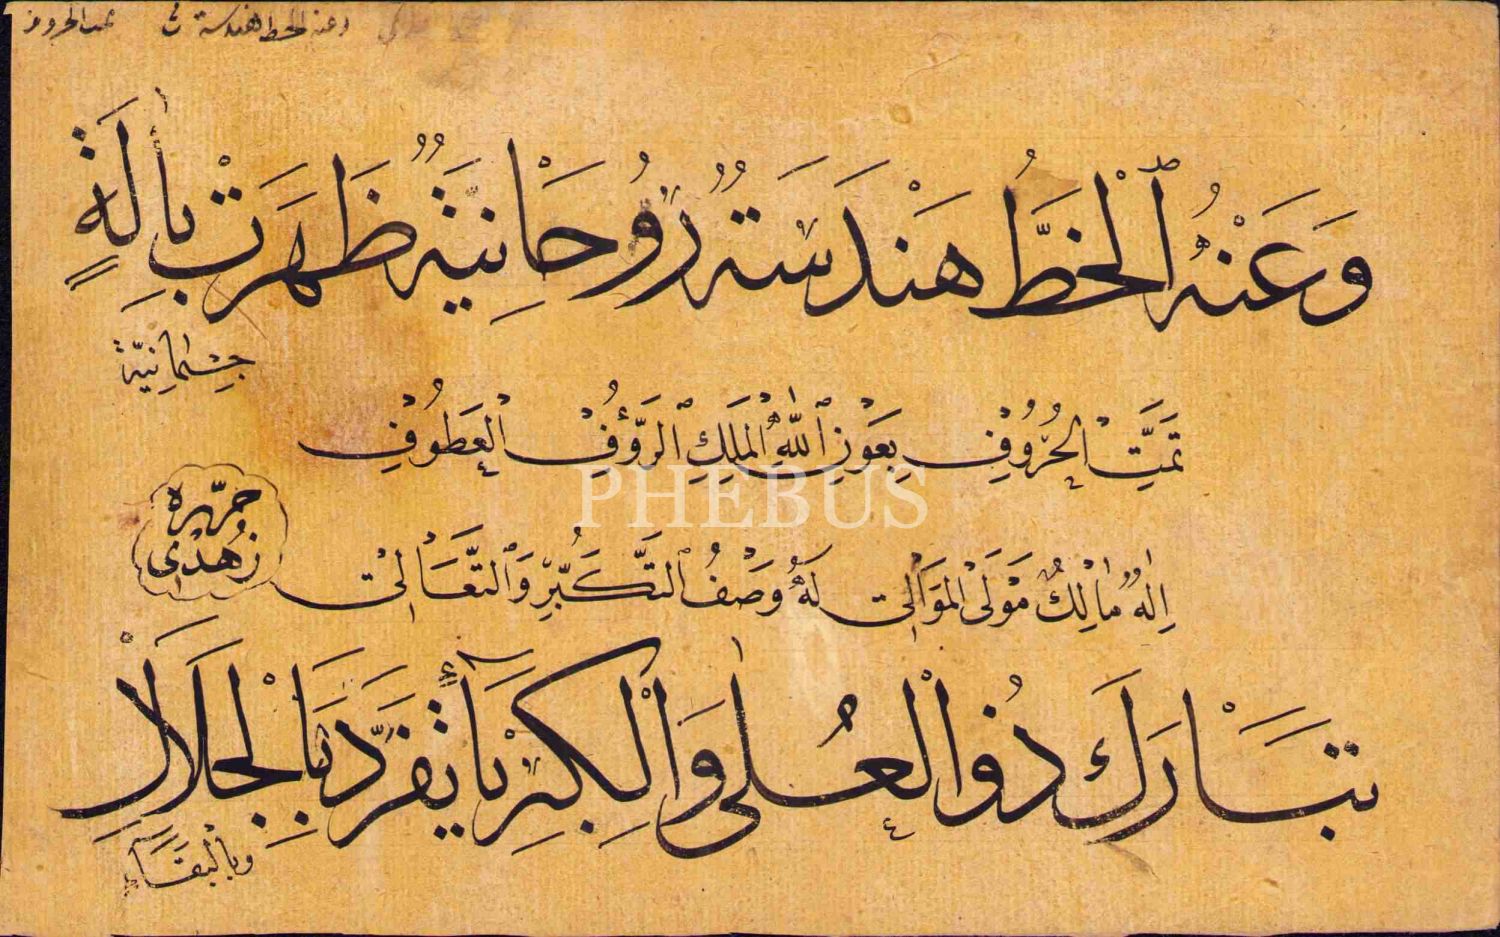 وعنه الخط هندسة في تمت الحروف
وَعَنْهُ ٱلْخَطُّ هَنْدَسَةٌ رُوحَانِيَّةٌ ظَهَرَتْ بِأٰلَةٍ
جِسْمَانِيَّة
تَمَّتِ الْحُرُوفِ بِعَوْنِ ٱللّٰهِ الْمَلِكِ ٱلرَّؤُفِ الْعَطُوفِ
PHEBUS
حمزه
زُهْدى
اِلٰهٌ مَالِكٌ مَوْلَى الْمَوَالِى لَهُ وَصْفُ ٱلتَّكَبُّرِ وَٱلتَّعَالِى
تَبَارَكَ ذُو الْعُلٰى وَالْكِبْرِيَآءِ تَفَرَّدَ بِالْجَلَالِ
وَبِالْبَقَآءِ